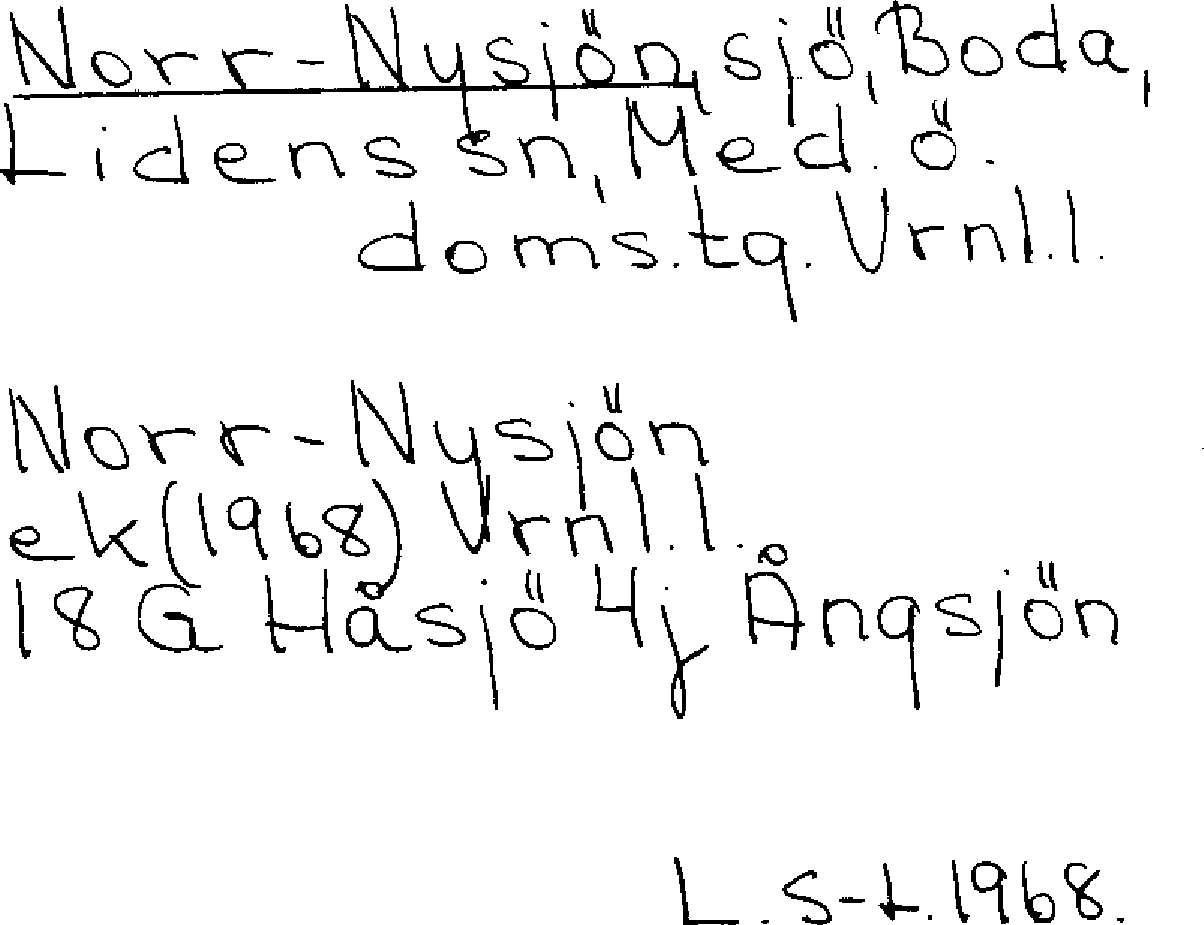 Norr-Nysjön, sjö, Boda,
Lidens sn, Med. ö.
doms.tg. Vrnl.l.
Norr-Nysjön
ek (1968) Vrnl.l.
18 G Håsjö 4j Ångsjön
L. S-t. 1968.